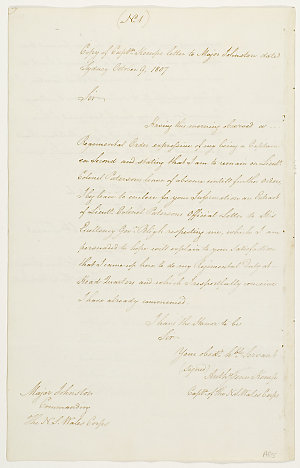 (No. 1)
Copy of Captn. Kemps letter to Major Johnston dated
Sydney October 9, 1807
Sir
Having this morning observed a
Regimental Order expressive of my being a Captain
en Second and stating that I am to remain on Lieut.
Colonel Patersons leave of absence untill further orders
I beg leave to enclose for your Information an Extract
of Lieut. Colonel Patersons Official Letter to His
Excellency Govr. Bligh respecting me, which I am
persuaded to hope will explain to your Satisfaction
that I came up here to do my Regimental Duty at
Head Quarters and which I respectfully conceive
I have already commenced.
I have the Honor to be
Sir
Your obedt. Hble Servant
Signed
Anthy. Fenn Kemp
Captn. of the N S Wales Corps
Major Johnston
Commanding
The N. S. Wales Corps